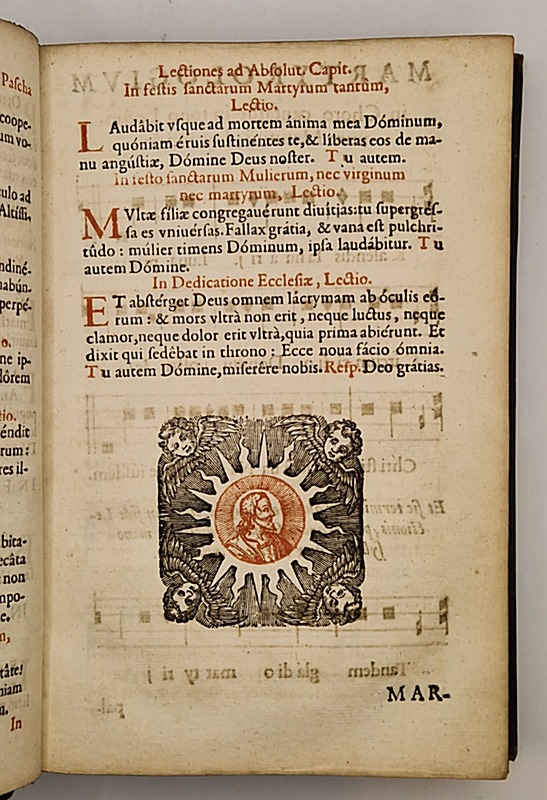 Pascha
coope-
um vo-
culo ad
Altíssi,
ndiné-
abún-
perpé-
o.
ne ip-
dôrem
tio.
éndit
rum:
res il-
bita-
ecâta
non
mpo-
e.
m,
tâte!
niam
m.
In
Lectiones ad Absolut. Capit.
In festis sanctarum Martyrum tantùm,
Lectio.
LAudâbit vsque ad mortem ánima mea Dóminum,
quóniam éruis sustinéntes te, & líberas eos de ma-
nu angústiæ, Dómine Deus noster. Tu autem.
In festo sanctarum Mulierum, nec virginum
nec martyrum, Lectio.
MVltæ fíliæ congregauérunt diuítias: tu supergrés-
sa es vniuérsas. Fallax grátia, & vana est pulchri-
tûdo: múlier timens Dóminum, ipsa laudábitur. Tu
autem Dómine.
In Dedicatione Ecclesiæ, Lectio.
ET abstérget Deus omnem lácrymam ab óculis eô-
rum: & mors vltrà non erit, neque luctus, neque
clamor, neque dolor erit vltrà, quia prima abiérunt. Et
dixit qui sedébat in throno: Ecce noua fácio ómnia.
Tu autem Dómine, miserêre nobis. Resp. Deo grátias.
MAR-